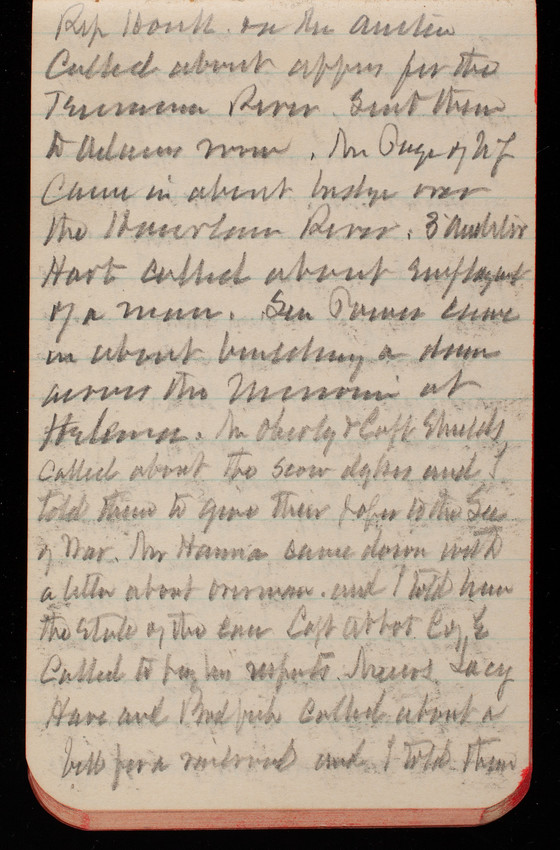 Rep Houk on the
Called about appns for the
Tennessee River. Sent them
to Adams room. Mr Page of NY
Came in about bridge over
the River.
Hart called about Employment
of a man. Sen Power came
in about building a dam
across the Missouri at
Helena. Mr Oberly & Capt Shields
called about the Scow dykes and I
told them to give their to the Sec
of War. Mr Hanna came down with
a letter about and I told him
the State of the case Capt Abbot C of E
Called to pay his respects. Messrs Lacy
Hare and called about a
bill for a railroad and I told them